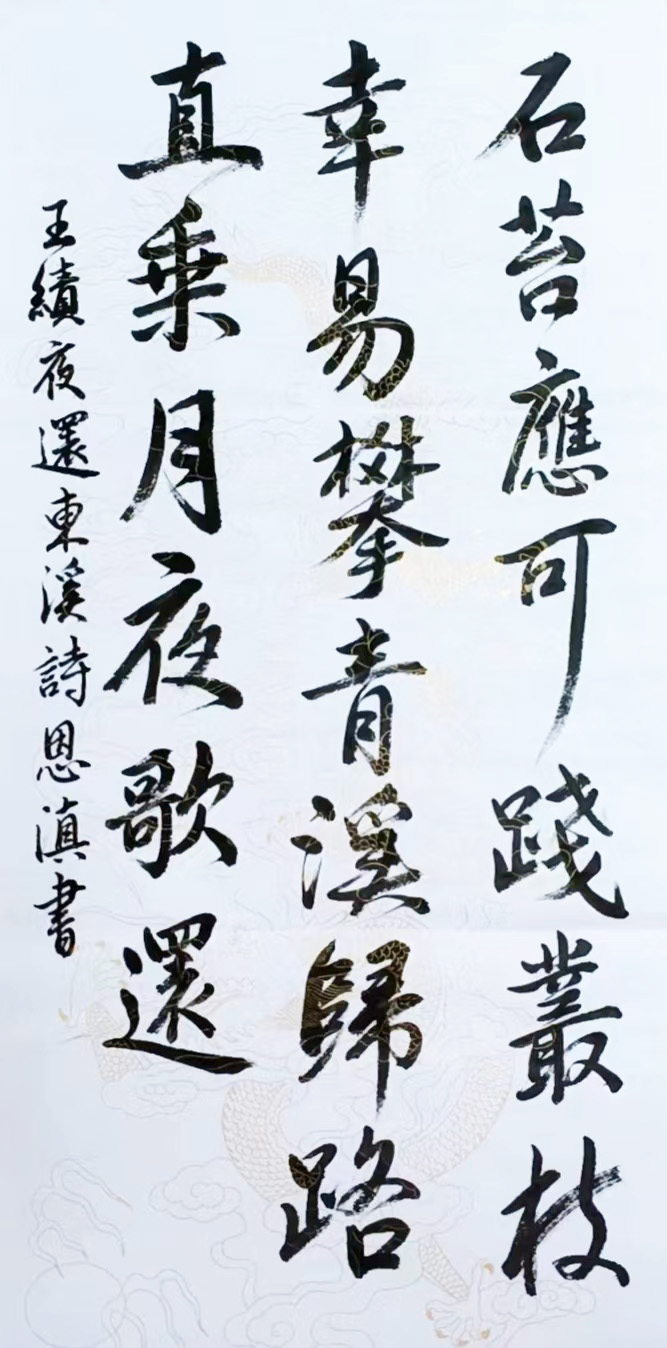 石苔應可踐叢枝
幸易攀青溪歸路
直乗月夜歌還
王績夜還東溪詩恩滇書